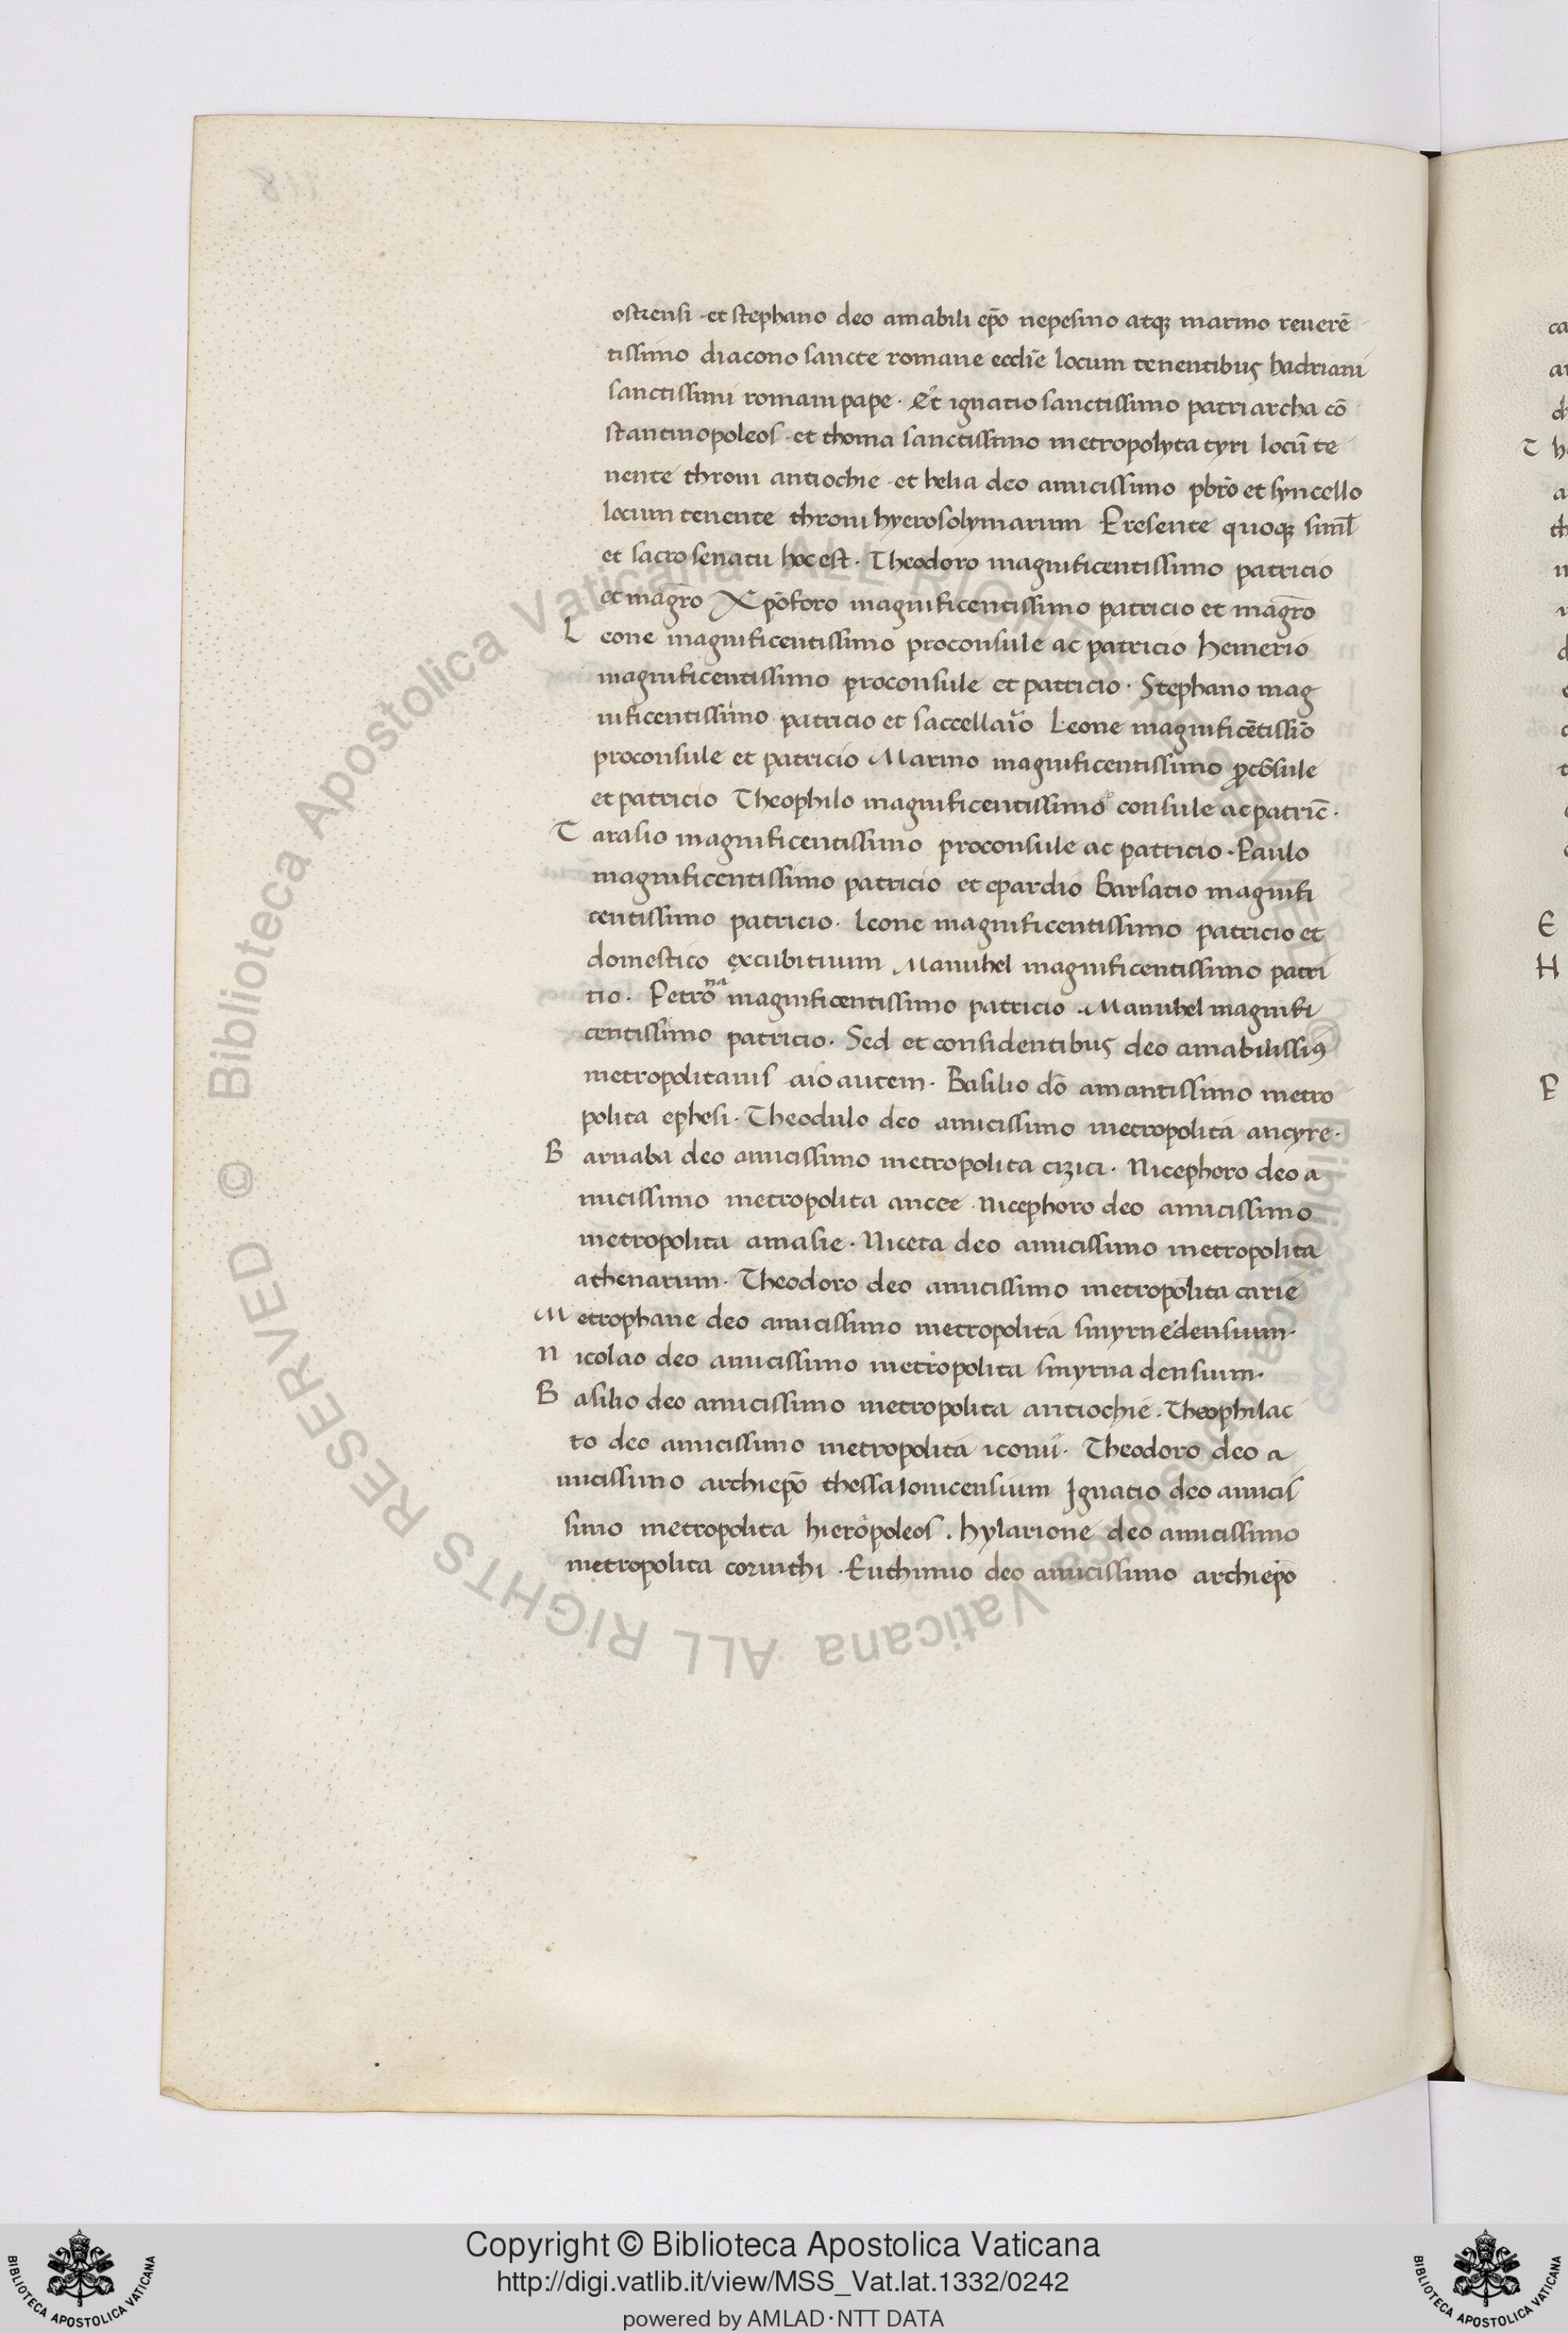 ostiensi · et stephano deo amabili ep̄o nepesino atqꝫ marino reuerē
tissimo diacono sancte romane ecclīe locum tenentibus hadriani
sanctissimi romani pape · Et ignatio sanctissimo patriarcha cō
stantinopoleos · et thoma sanctissimo metropolyta tyri locū te
nente throni antiochie · et helia deo amicissimo pbrō et syncello
locum tenente throni hyerosolymarum Presente quoqꝫ siml̄
et sacro senatu hoc est · Theodoro magnificentissimo patricio
et magrō Xpōforo magnificentissimo patricio et magrō
Leone magnificentissimo proconsule ac patricio hemerio
magnificentissimo proconsule et patricio · Stephano mag
nificentissimo patricio et saccellario Leone magnificētissīo
proconsule et patricio Marino magnificentissimo ꝓcōsule
et patricio Theophilo magnificentissimo consule ac patric̄ ·
Tarasio magnificentissimo proconsule ac patricio · Paulo
magnificentissimo patricio et epardio Barsatio magnifi
centissimo patricio · Leone magnificentissimo patricio et
domestico excubituum Manuhel magnificentissimo patri
tio · Petrona magnificentissimo patricio · Manuhel magnifi
centissimo patricio · Sed et considentibus deo amabilissiꝰ
metropolitanis aio autem · Basilio dō amantissimo metro
polita ephesi · Theodulo deo amicissimo metropolita ancyre ·
Barnaba deo amicissimo metropolita cizici · Nicephoro deo a
micissimo metropolita ancee · Nicephoro deo amicissimo
metropolita amasie · Niceta deo amicissimo metropolita
athenarum · Theodoro deo amicissimo metropolita carie
Metrophane deo amicissimo metropolita smyrnedensium ·
Nicolao deo amicissimo metropolita smyrnadensium ·
Basilio deo amicissimo metropolita antiochie · Theophilac
to deo amicissimo metropolita iconii · Theodoro deo a
micissimo archiepō thessalonicensium Ignatio deo amicis
simo metropolita hieropoleos · hylarione deo amicissimo
metropolita corinthi · Euthimio deo amicissimo archiepō
© Biblioteca Apostolica Vaticana ALL RIGHTS RESERVED
Copyright © Biblioteca Apostolica Vaticana
http://digi.vatlib.it/view/MSS_Vat.lat.1332/0242
powered by AMLAD·NTT DATA
BIBLIOTECA APOSTOLICA VATICANA
BIBLIOTECA APOSTOLICA VATICANA